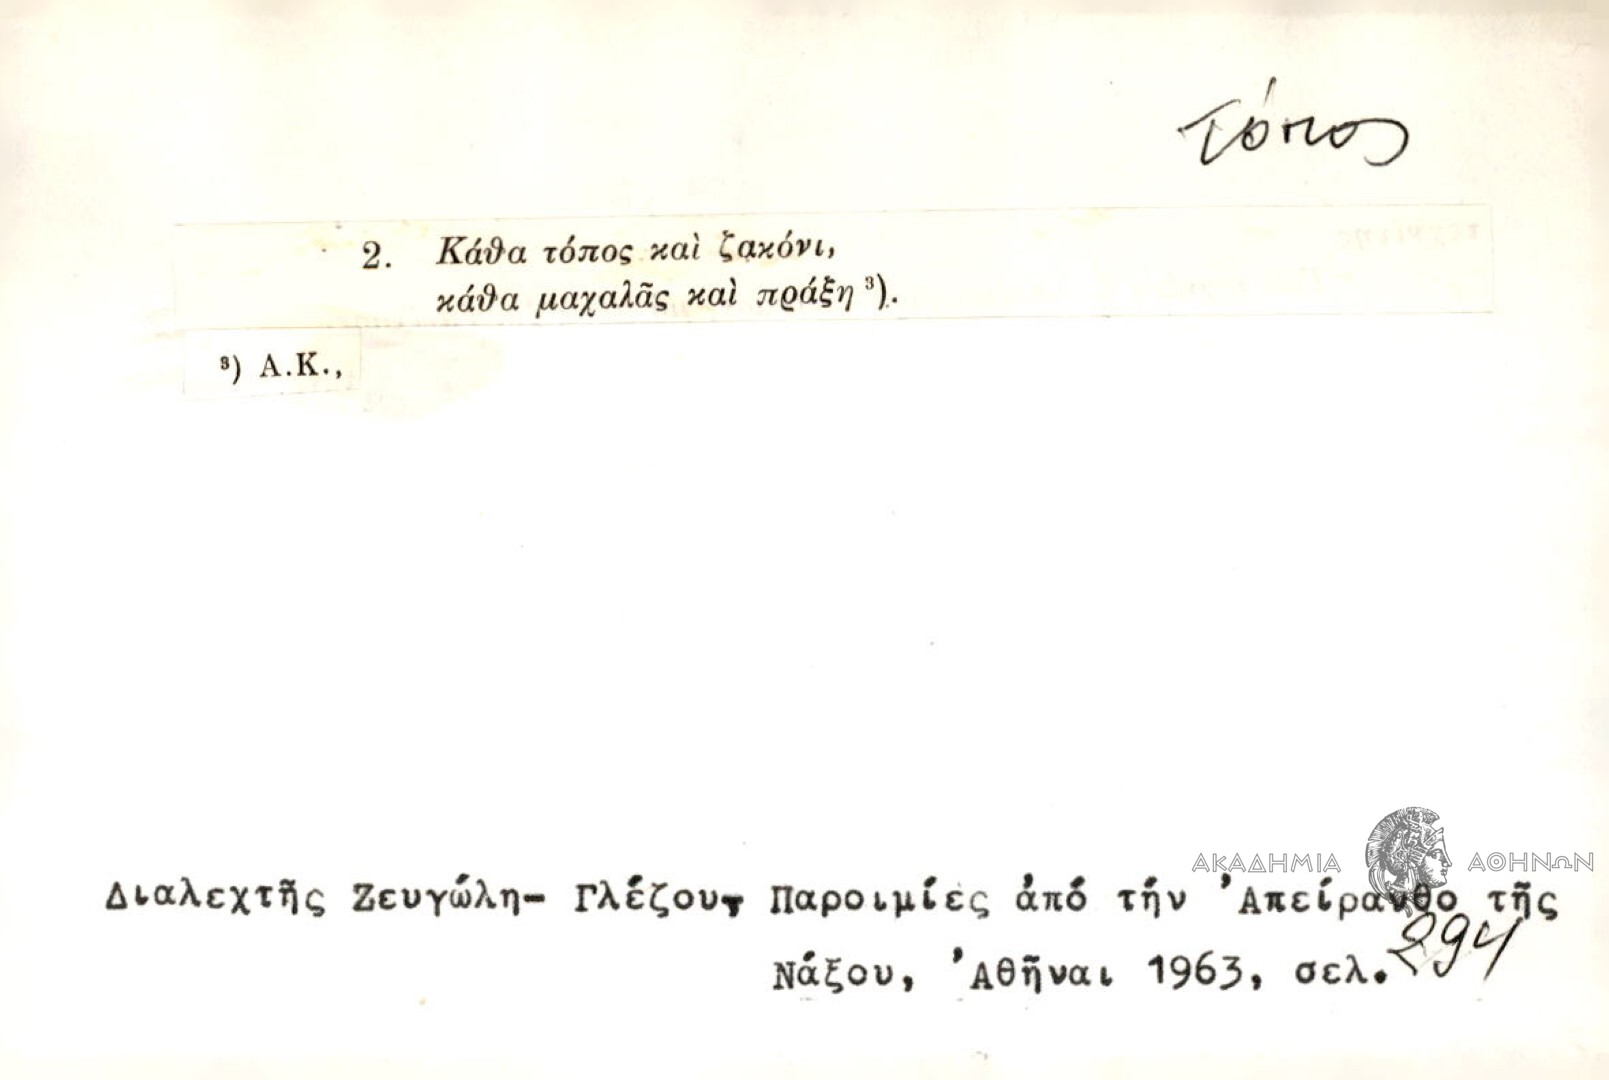 τόπος
2. Κάθα τόπος καὶ ζακόνι,
κάθα μαχαλᾶς καὶ πράξη ³).
³) Α.Κ.,
ΑΚΑΔΗΜΙΑ ΑΘΗΝΩΝ
Διαλεχτῆς Ζευγώλη- Γλέζου, Παροιμίες ἀπό τήν Ἀπείρανθο τῆς
Νάξου, Ἀθῆναι 1963, σελ. 294